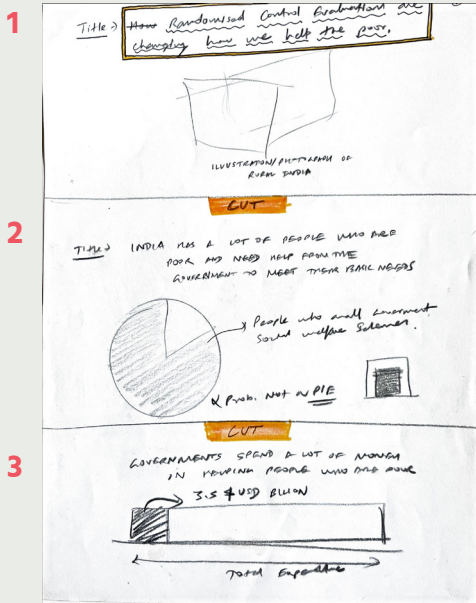 1
Title → How Randomised Control Evaluations are
changing how we help the poor.
ILLUSTRATION/PHOTOGRAPH OF
RURAL INDIA
CUT
2
Title → INDIA HAS A LOT OF PEOPLE WHO ARE
POOR AND NEED HELP FROM THE
GOVERNMENT TO MEET THEIR BASIC NEEDS
People who government
Social welfare Schemes.
Prob. Not a PIE
CUT
3
GOVERNMENTS SPEND A LOT OF MONEY
IN HELPING PEOPLE WHO ARE POOR
3.5 $ USD BILLION
Total Expenditure